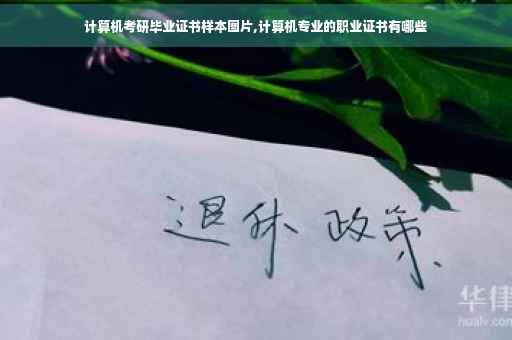 计算机考研毕业证书样本图片,计算机专业的职业证书有哪些
退休 政策
华律
hualv.com